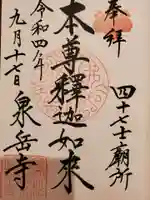 奉拝
四十七士廟所
本尊釋迦如来
令和四年
九月十七日
泉岳寺